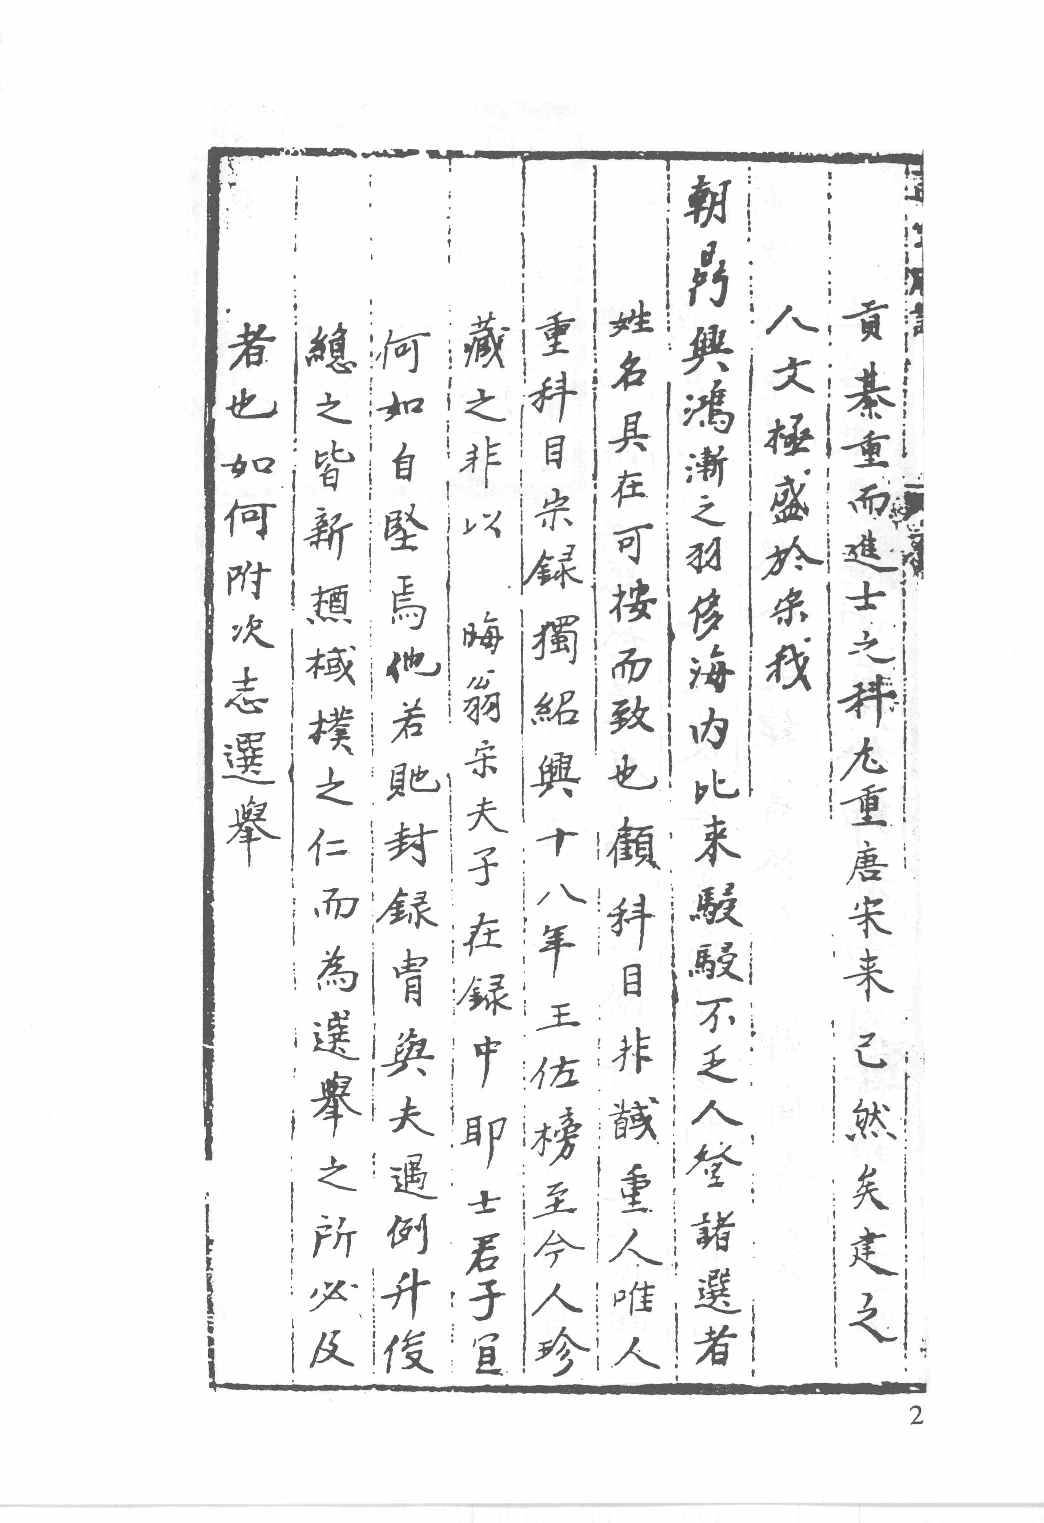 貢綦重而進士之科尤重唐宋来已然矣建之
人文極盛於宋我
朝鼎興鴻漸之羽侈海内比来駸駸不乏人登諸選者
姓名具在可按而致也顧科目非馘重人唯人
重科目宋録獨紹興十八年王佐榜至今人珍
藏之非以 晦翁宋夫子在録中耶士君子宜
何如自堅焉他若貤封録胄與夫遇例升俊
總之皆新槱棫樸之仁而為選舉之所必及
者也如何附次志選舉
2